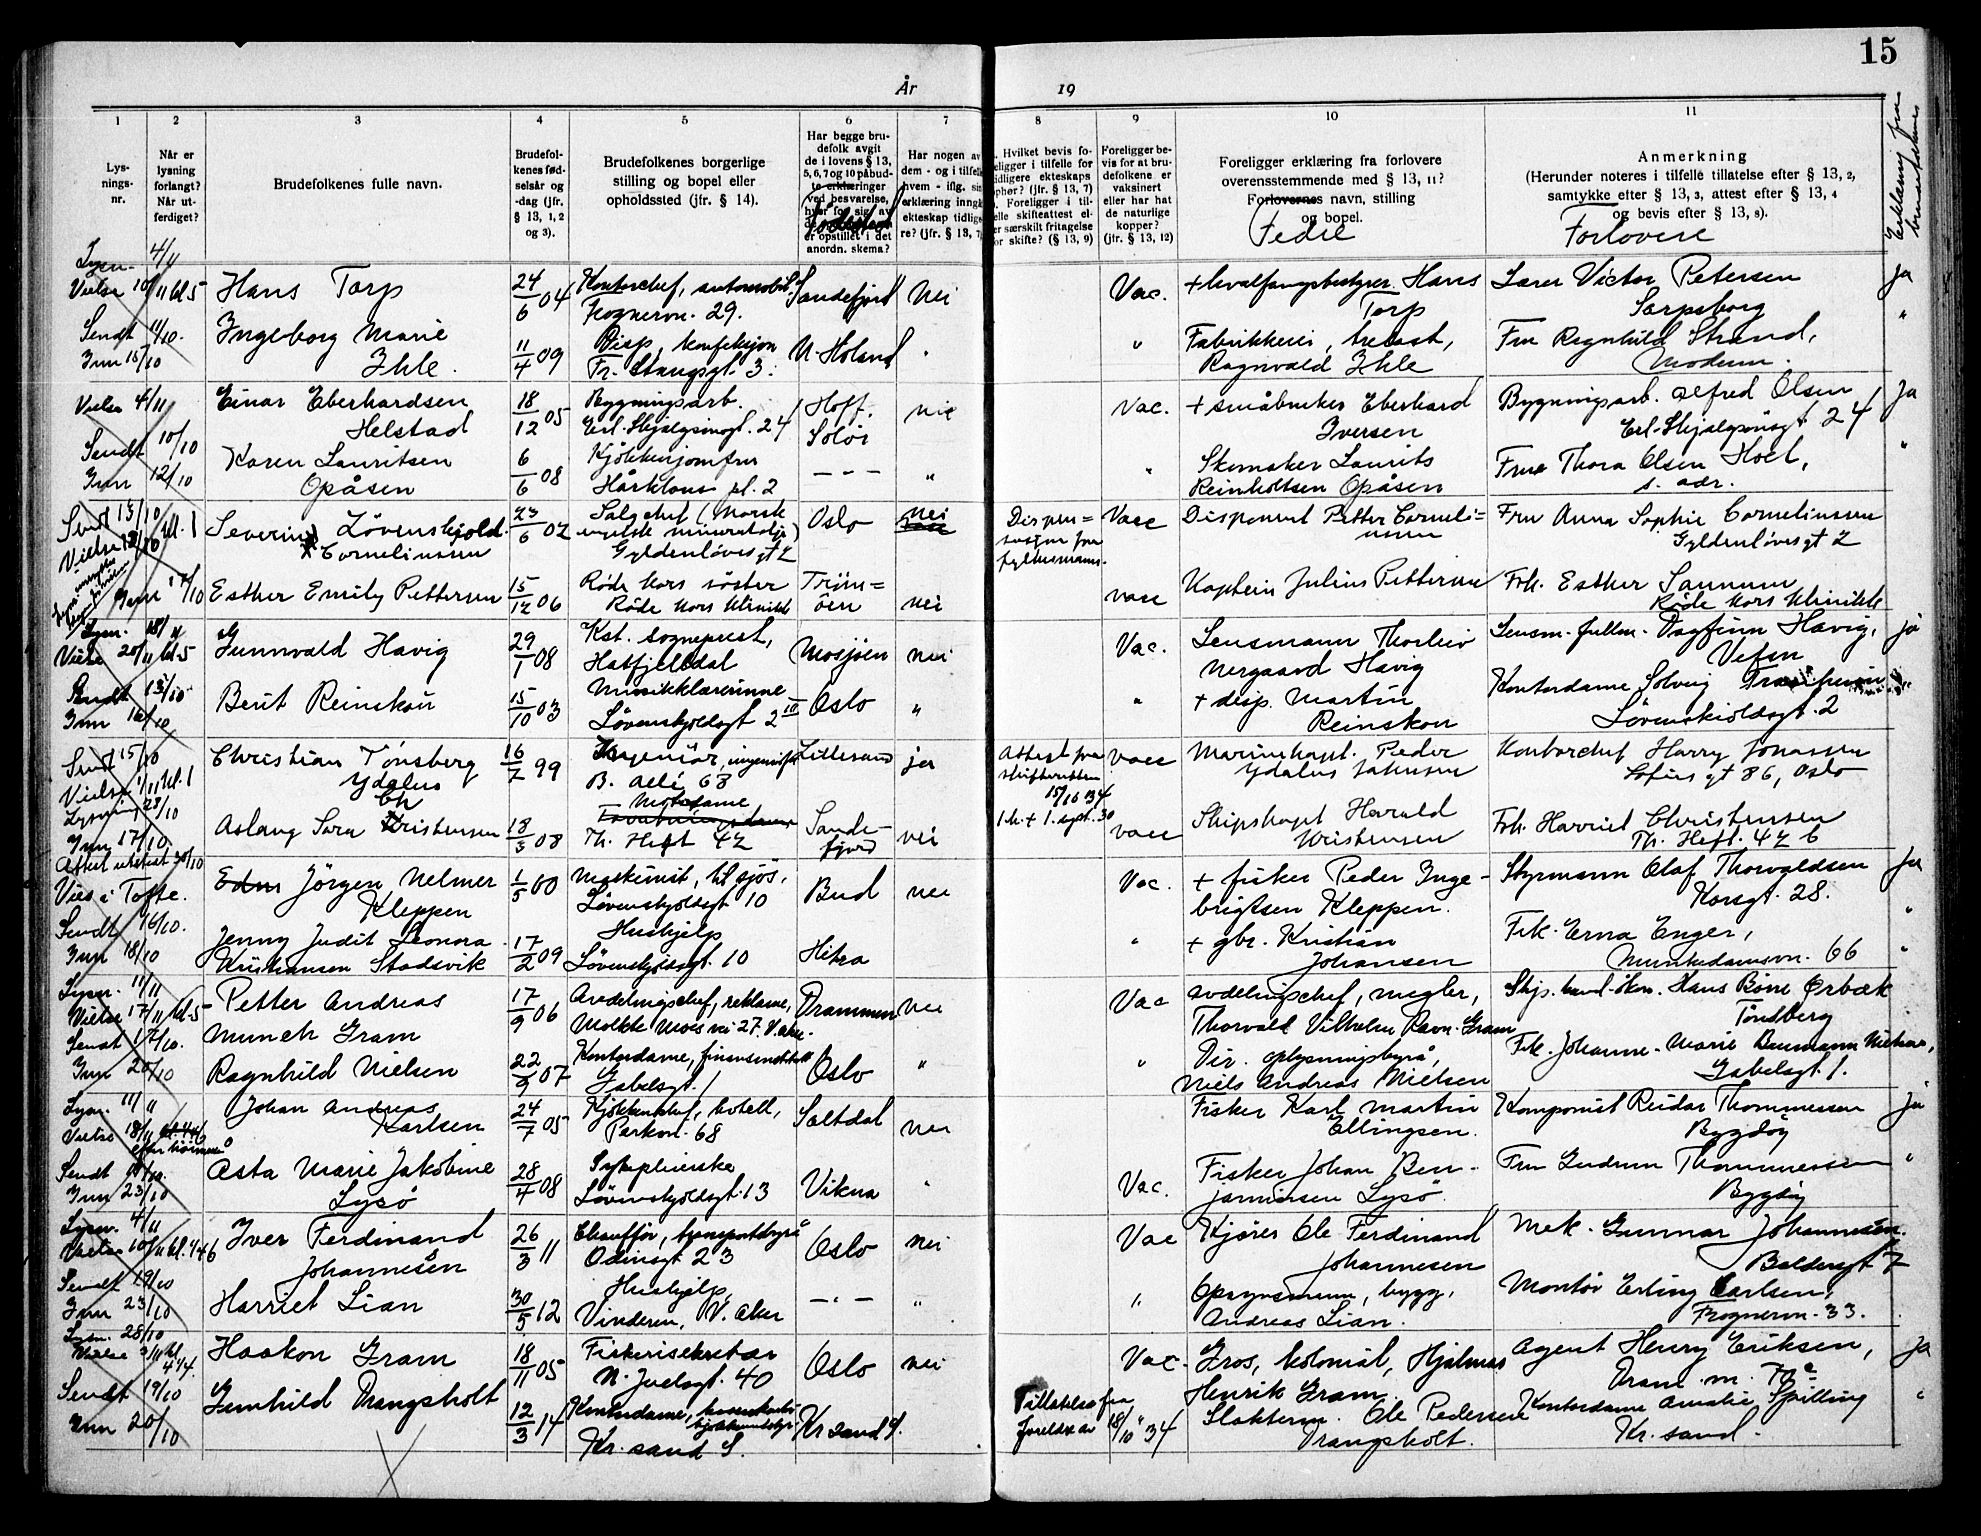 15
År
19
1
2
3
4
5
6
7
8
9
10
11
Lys-
nings-
nr.
Når er
lysning
forlangt?
Når ut-
ferdiget?
Brudefolkenes fulle navn.
Brudefol-
kenes fød-
selsår og
-dag (jfr.
§ 13, 1, 2
og 3).
Brudefolkenes borgerlige
stilling og bopel eller
opholdssted (jfr. § 14).
Har begge bru-
defolk avgit
de i lovens § 13,
5, 6, 7 og 10 påbud-
te erklæringer
ved besvarelse,
hver for sig, av
er opstillet i det
anordn. skema?
Fødested
Har nogen av
dem - og i tilfelle
hvem - iflg.
erklæring inngå
ekteskap tidlige
re? (jfr. § 13, 7)
Hvilket bevis fo-
religger i tilfelle for
tidligere ekteskaps
ophør? (jfr. § 13, 7)
Foreligger i til-
felle skifteattest el-
er særskilt fritagelse
for skifte? (§ 13, 9)
Foreligger be-
vis for at bru-
defolkene er
vaksinert
eller har hat
de naturlige
kopper?
(jfr. § 13, 12)
Foreligger erklæring fra forlovere
overensstemmende med § 13, 11?
Forlovernes navn, stilling
og bopel.
Fedre
Anmerkning
(Herunder noteres i tilfelle tillatelse efter § 13, 2,
samtykke efter § 13, 3, attest efter § 13, 4
og bevis efter § 13, 8).
Forlovere
Erklæring fra
brudefolkene
Lysn. 4/11
Vielse 10/11 kl. 5
Hans Torp
24/6 04
Kontorchef, automobil
Frognervn. 29.
Sandefjord
Nei
Vac.
+ hvalfangstbestyrer Hans
Torp
Lærer Victor Petersen
Sarpsborg
Ja
Sendt 11/10.
Inn 15/10
Ingeborg Marie
Ihle.
11/4 09
Disp, konfeksjon
Fr. Stangsgt. 3.
N. Høland
"
"
Fabrikkeier, trelast,
Ragnvald Ihle
Fru Ragnhild Strand,
Modum.
"
Vielse 4/11
Einar Eberhardsen
Helstad
18/12 05
Bygningsarb.
Erl. Skjalgsøngt. 24
Hoff,
Solør
nei
Vac.
+ småbruker Eberhard
Iversen
Bygningsarb. Alfred Olsen
Erl. Skjalgsøngt 24
Ja
Sendt 10/10
Inn 12/10
Karen Lauritsen
Opåsen
6/6 08
Kjøkkenjomfru
Hårklous pl. 2
— " —
"
"
Skomaker Laurits
Reinholtsen Opåsen
Frue Thora Olsen Hoel,
s. adr.
"
Sendt 13/10
Vielse 18/10 kl. 1
Severin Løvenskjold
Corneliussen
23/6 02
Salgschef (Norsk
engelske mineralolje)
Gyldenløvesgt 2
Oslo
nei
Dispen=
sasjon fra
fylkesmann.
Vacc
Disponent Petter Corneli=
ussen
Fru Anna Sophie Corneliussen
Gyldenløvesgt 2
Inn 17/10
Esther Emily Pettersen
15/12 06
Røde Kors søster
Røde Kors Klinikk
Trom=
øen
nei
vacc
Kaptein Julius Pettersen
Frk. Esther Sannum
Røde Kors Klinikk
Lysn. 18/11
Vielse 25/11 kl. 5
Gunnvald Havig
29/1 08
Kst. sogneprest,
Hatfjelldal
Mosjøen
nei
Vac.
Lensmann Thorleiv
Nergaard Havig
Lensm. fullm. Dagfinn Havig,
Vefsn
ja
Sendt 13/10
Inn 16/10
Berit Reinskou
15/10 03
Musikklærerinne
Løvenskjoldsgt 2 III
Oslo
"
"
+ disp. Martin
Reinskou
Kontordame Solveig
Løvenskioldsgt. 2
Sendt 15/10
Vielse 1/11 kl. 1
Lysning 23/10
Christian Tønsberg
Ydalus
16/7 99
Ingeniør,
B. Alle 63
Lillesand
ja
Attest fra
skifteretten
15/10 34
1.k. + 1. sept. 30
vacc
Marinekapt. Peder
Ydalus Johnsen
Kontorchef Harry Jonassen
Sofies gt 86, Oslo
Inn 17/10
Attest utstedt 30/10
Aslaug Sara Christensen
18/3 08
Motedame
Th. Heft 42
Sande-
fjord
nei
vacc
Skipskapt Harald
Christensen
Frk. Harriet Christensen
Th. Heft. 42 b
Vies i Tofte.
Edm Jörgen Nelmer
Kleppen
1/5 00
Maskinist, til sjös,
Løvenskjoldsgt 10
Bud
nei
Vac.
+ fisker Peder Inge-
brigtsen Kleppen.
Styrmann Olaf Thorvaldsen
Korsgt. 28.
Ja
Sendt 16/10.
Inn 18/10
Jenny Judit Leonora
Kristiansen Stadsvik
17/2 09
Hushjelp
Løvenskjoldsgt. 10
Hitra
"
+ gbr. Kristian
Johansen
Frk. Erna Enger,
Munkedamsvn. 66
"
Lysn. 11/11
Vielse 17/11 kl. 5
Petter Andreas
Munch Gram
17/9 06
Avdelingschef, reklame,
Moltke Moes vei 27. V. Aker.
Drammen
nei
Vac
avdelingschef, megler,
Thorvald Vilhelm Ravn-Gram
Hans Bøne Ørbæk
Tønsberg
"
Sendt 17/10.
Inn 20/10
Ragnhild Nielsen
22/9 07
Kontordame, finansinstitutt
Gabelsgt. 1
Oslo
"
"
Dir. oplysningsbyrå,
Niels Andreas Nielsen
Frk. Johanne-Marie Baumann Nielsen,
Gabelsgt 1.
Lysn. 11/11
Vielse 18/11
Johan Andreas
Karlsen
24/7 05
Kjøkkenchef, hotell,
Parkvn. 68
Saltdal
nei
Fisker Karl Martin
Ellingsen.
Komponist Reidar Thommessen
Bygdøy
ja
Sendt
Inn 23/10
Asta Marie Jakobine
Lysø
28/4 08
Sykepleierske
Løvenskjoldsgt. 13
Vikna
"
Vac.
Fisker Johan Ben-
jaminsen Lysø.
Fru Gudrun Thommessen
Bygdøy
"
Lysn. 4/11
Vielse 10/11 kl. 4 46
Iver Ferdinand
Johannesen
26/3 11
Chauffør, transportbyrå
Odinsgt 23
Oslo
nei
Vac
Kjører Ole Ferdinand
Johannesen
Mek. Gunnar Johannesen.
Baldersgt 7
Sendt 19/10
Inn 23/10
Harriet Lian
30/5 12
Hushjelp,
Vinderen, V. Aker
— " —
"
"
Opsynsmann, bygg,
Andreas Lian.
Montør Erling Carlsen,
Frognervn. 33.
Lysn. 28/10
Haakon Gram
18/11 05
Fiskerisekretær
N. Juelsgt. 40
Oslo
nei
Vac.
Gros, kolonial, Hjalmar
Henrik Gram.
Agent Henry Eriksen,
Dram. m.
Ja
Sendt 19/10
Inn 20/10
Gunhild Drangsholt
12/3 14
Kontordame,
Kr. sand S.
Kr sand S.
Tillatelse fra
foreldre av 18/10 34
Slakterm. Ole Pedersen
Drangsholt.
Kontordame Amalie Spilling
Kr. sand.
"